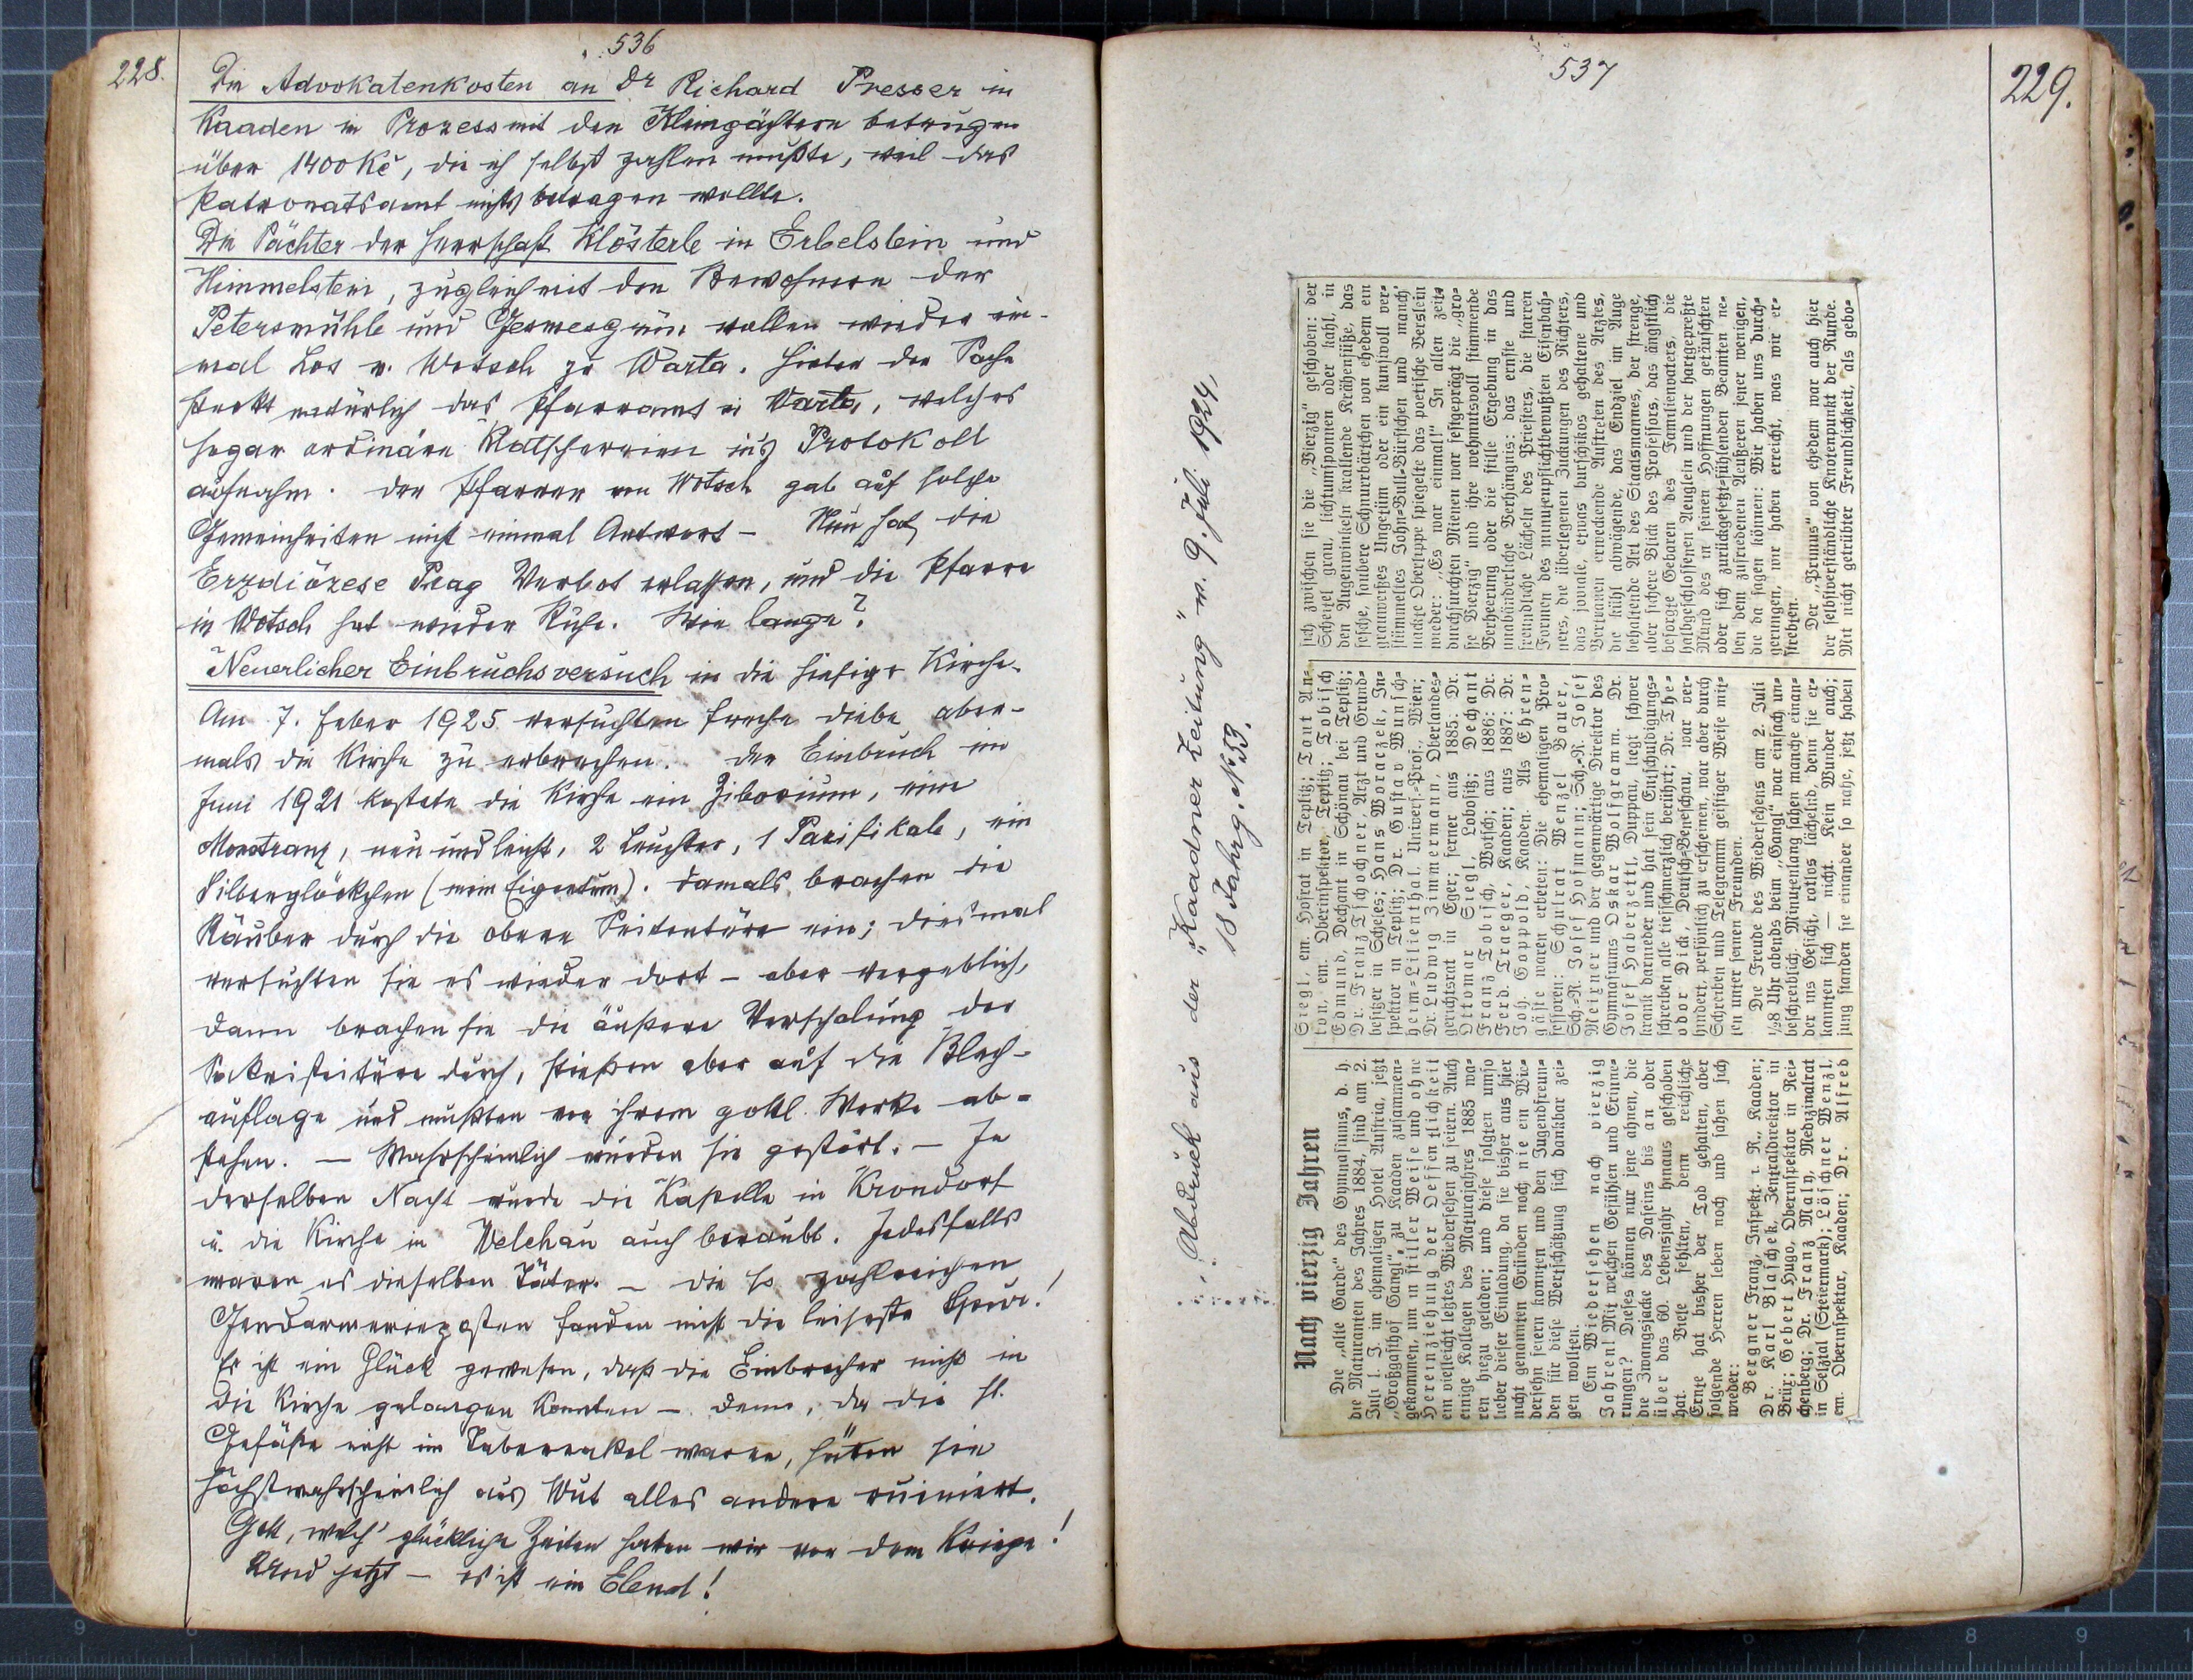 228.
536
Die Advokatenkosten an Dr Richard Presser in
Kaaden im Prozess mit den Kleinpächtern betrugen
über 1400 Kč, die ich selbst zahlen mußte, weil das
Patronatsamt nichts beitragen wollte.
Die Pächter der Herrschaft Klösterle in Erbelstein und
Himmelstein, zugleich mit den Bewohnern der
Petersmühle und Gesmesgrün wollen wieder ein-
mal Los v. Wotsch zu Warta. Hinter der Sache
steckt natürlich das Pfarramt in Warta, welches
sogar ordinäre Klatschereien in's Protokoll
aufnahm. Der Pfarrer von Wotsch gab auf solche
Gemeinheiten nicht einmal Antwort – Nun hat die
Erzdiözese Prag Verbot erlassen, und die Pfarre
in Wotsch hat wieder Ruhe. Wie lange?
Neuerlicher Einbruchsversuch in die hiesige Kirche.
Am 7. Feber 1925 versuchten freche Diebe aber-
mals die Kirche zu erbrechen. Der Einbruch im
Juni 1921 kostete die Kirche ein Ziborium, eine
Monstranz, neu und leicht, 2 Leuchter, 1 Pazifikale, ein
Silberglöckchen (mein Eigentum). Damals brachen die
Räuber durch die obere Seitentüre ein; diesmal
versuchten sie es wieder dort – aber vergeblich,
dann brachen sie die äußere Verschalung der
Sakristeitüre durch, stießen aber auf die Blech-
auflage und mußten von ihrem gottl. Werke ab-
stehen. – Wahrscheinlich wurden sie gestört. – In
derselben Nacht wurde die Kapelle in Krondorf
u. die Kirche in Welchau auch beraubt. Jedesfalls
waren es dieselben Täter. – Die so zahlreichen
Gendarmerieposten fanden nicht die leiseste Spur!
Es ist ein Glück gewesen, daß die Einbrecher nicht in
die Kirche gelangen konnten – denn, da die hl.
Gefäße nicht im Tabernakel waren, hätten sie
höchstwahrscheinlich aus Wut alles andere ruiniert.
Gott, welch' glückliche Zeiten hatten wir vor dem Kriege!
Und jetzt – es ist ein Elend!
537
229.
Abdruck aus der „Kaadner Zeitung" v. 9. Juli 1924,
18 Jahrg. № 53.
Nach vierzig Jahren
Die „alte Garde" des Gymnasiums, d. h.
die Maturanten des Jahres 1884, sind am 2.
Juli l. J. im ehemaligen Hotel Austria, jetzt
„Großgasthof Gangl", zu Kaaden zusammen-
gekommen, um in stiller Weise und ohne
Hereinziehung der Oeffentlichkeit
ein vielleicht letztes Wiedersehen zu feiern. Auch
einige Kollegen des Maturajahres 1885 wa-
ren hiezu geladen; und diese folgten umso
lieber dieser Einladung, da sie bisher aus hier
nicht genannten Gründen noch nie ein Wie-
dersehn feiern konnten und den Jugendfreun-
den für diese Wertschätzung sich dankbar zei-
gen wollten.
Ein Wiedersehen nach vierzig
Jahren! Mit welchen Gefühlen und Erinne-
rungen? Dieses können nur jene ahnen, die
die Zwangsjacke des Daseins bis an oder
über das 60. Lebensjahr hinaus geschoben
hat. Viele fehlten, denn reichliche
Ernte hat bisher der Tod gehalten, aber
folgende Herren leben noch und sahen sich
wieder:
Bergner Franz, Inspekt. i. R., Kaaden;
Dr. Karl Blaschek, Zentraldirektor in
Brüx; Gebert Hugo, Oberinspektor in Rei-
chenberg; Dr. Franz Maly, Medizinalrat
in Selztal (Steiermark); Löschner Wenzl,
em. Oberinspektor, Kaaden; Dr. Alfred
Siegl, em. Hofrat in Teplitz; Taut An-
ton, em. Oberinspektor, Teplitz; Tobisch
Edmund, Dechant in Schönau bei Teplitz;
Dr. Franz Tschochner, Arzt und Grund-
besitzer in Scheles; Hans Woraczek, In-
spektor in Teplitz; Dr. Gustav Wunsch-
heim-Lilienthal, Univers.-Prof., Wien;
Dr. Ludwig Zimmermann, Oberlandes-
gerichtsrat in Eger; ferner aus 1885: Dr.
Ottomar Siegl, Lobositz; Dechant
Franz Tobisch, Wotsch; aus 1886: Dr.
Ferd. Traeger, Kaaden; aus 1887: Dr.
Joh. Goppold, Kaaden. Als Ehren-
gäste waren erbeten: Die ehemaligen Pro-
fessoren: Schulrat Wenzel Bauer,
Sch.-R. Josef Hofmann; Sch.-R. Josef
Meixner und der gegenwärtige Direktor des
Gymnasiums Oskar Wolfgramm. Dr.
Josef Haberzettl, Duppau, liegt schwer
krank darnieder und hat sein Entschuldigungs-
schreiben alle tiefschmerzlich berührt; Dr. The-
odor Dick, Deutsch-Beneschau, war ver-
hindert, persönlich zu erscheinen, war aber durch
Schreiben und Telegramm geistiger Weise mit-
ten unter seinen Freunden.
Die Freude des Wiedersehens am 2. Juli
½8 Uhr abends beim „Gangl" war einfach un-
beschreiblich. Minutenlang sahen manche einan-
der ins Gesicht, ratlos lächelnd, denn sie er-
kannten sich — nicht. Kein Wunder auch;
jung standen sie einander so nahe, jetzt haben
sich zwischen sie die „Vierzig" geschoben: der
Scheitel grau, lichtumsponnen oder kahl, in
den Augenwinkeln krallende Krähenfüße, das
fesche, saubere Schnurrbärtchen von ehedem ein
grauweißes Ungetüm oder ein kunstvoll ver-
stümmeltes John-Bull-Bürstchen und manch'
nackte Oberlippe spiegelte das poetische Verslein
wieder: „Es war einmal!" In allen zeit-
durchfurchten Mienen war festgeprägt die „gro-
ße Vierzig" und ihre wehmutsvoll stimmende
Verheerung oder die stille Ergebung in das
unabänderliche Verhängnis: das ernste und
freundliche Lächeln des Priesters, die starren
Formen des minutenpflichtbewußten Eisenbah-
ners, die überlegenen Zuckungen des Richters,
das joviale, etwas burschikos gehaltene und
Vertrauen erweckende Auftreten des Arztes,
die kühl abwägende, das Endziel im Auge
behaltende Art des Staatsmannes, der strenge,
aber sichere Blick des Professors, das ängstlich
besorgte Gebaren des Familienvaters, die
halbgeschlossenen Aeuglein und der hartgepreßte
Mund des in seinen Hoffnungen getäuschten
oder sich zurückgesetzt-fühlenden Beamten ne-
ben dem zufriedenen Aeußeren jener wenigen,
die da sagen können: Wir haben uns durch-
gerungen, wir haben erreicht, was wir er-
strebten.
Der „Primus" von ehedem war auch hier
der selbstverständliche Knotenpunkt der Runde.
Mit nicht getrübter Freundlichkeit, als gebo-